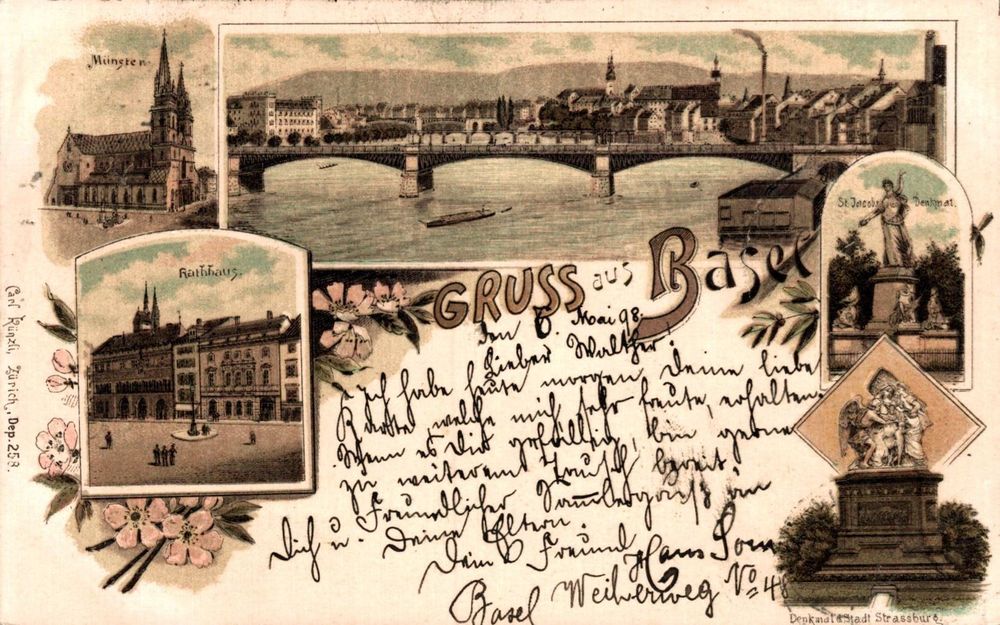 Münster.
Rathhaus.
St. Jacobs Denkmal.
GRUSS aus Basel
den 6. Mai 98.
Lieber Walther!
Ich habe heute morgen Deine liebe
Karte welche mich sehr freute, erhalten.
Wenn es dir gefällig, bin gerne
zu weiterem Tausch bereit.
Freundlicher Sammlergruß an
Dich u. Deine Eltern.
Dein Freund
Hans
Basel Weiherweg No 48
Denkmal d. Stadt Strassburg.
Carl Künzli, Zürich, Dep. 258.